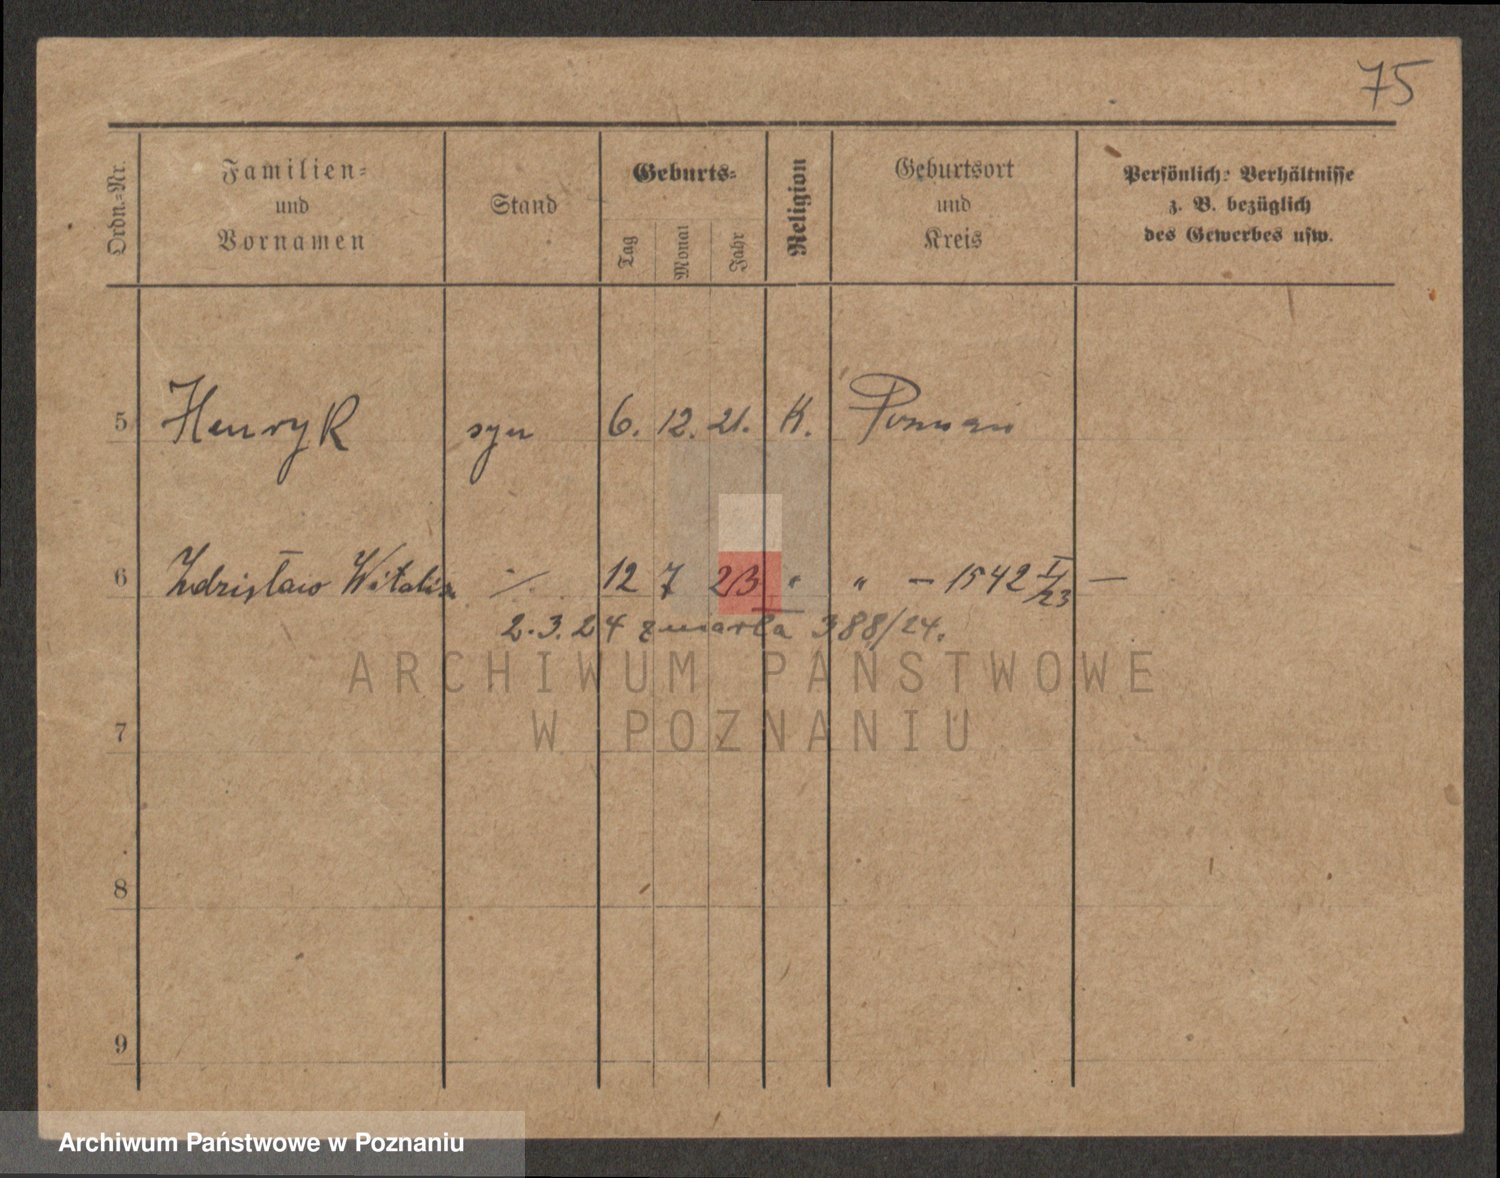 75
Ordn.-Nr.
Familien-
und
Vornamen
Stand
Geburts-
Tag
Monat
Jahr
Religion
Geburtsort
und
Kreis
Persönliche Verhältnisse
z. B. bezüglich
des Gewerbes usw.
5 Henryk syn 6. 12. 21. K. Poznań
6 Zdzisław Witalis -/- 12 7 23 " " - 1542 I/23 -
2.3.24 zmarła 388/24.
ARCHIWUM PAŃSTWOWE
W POZNANIU
7
8
9
Archiwum Państwowe w Poznaniu